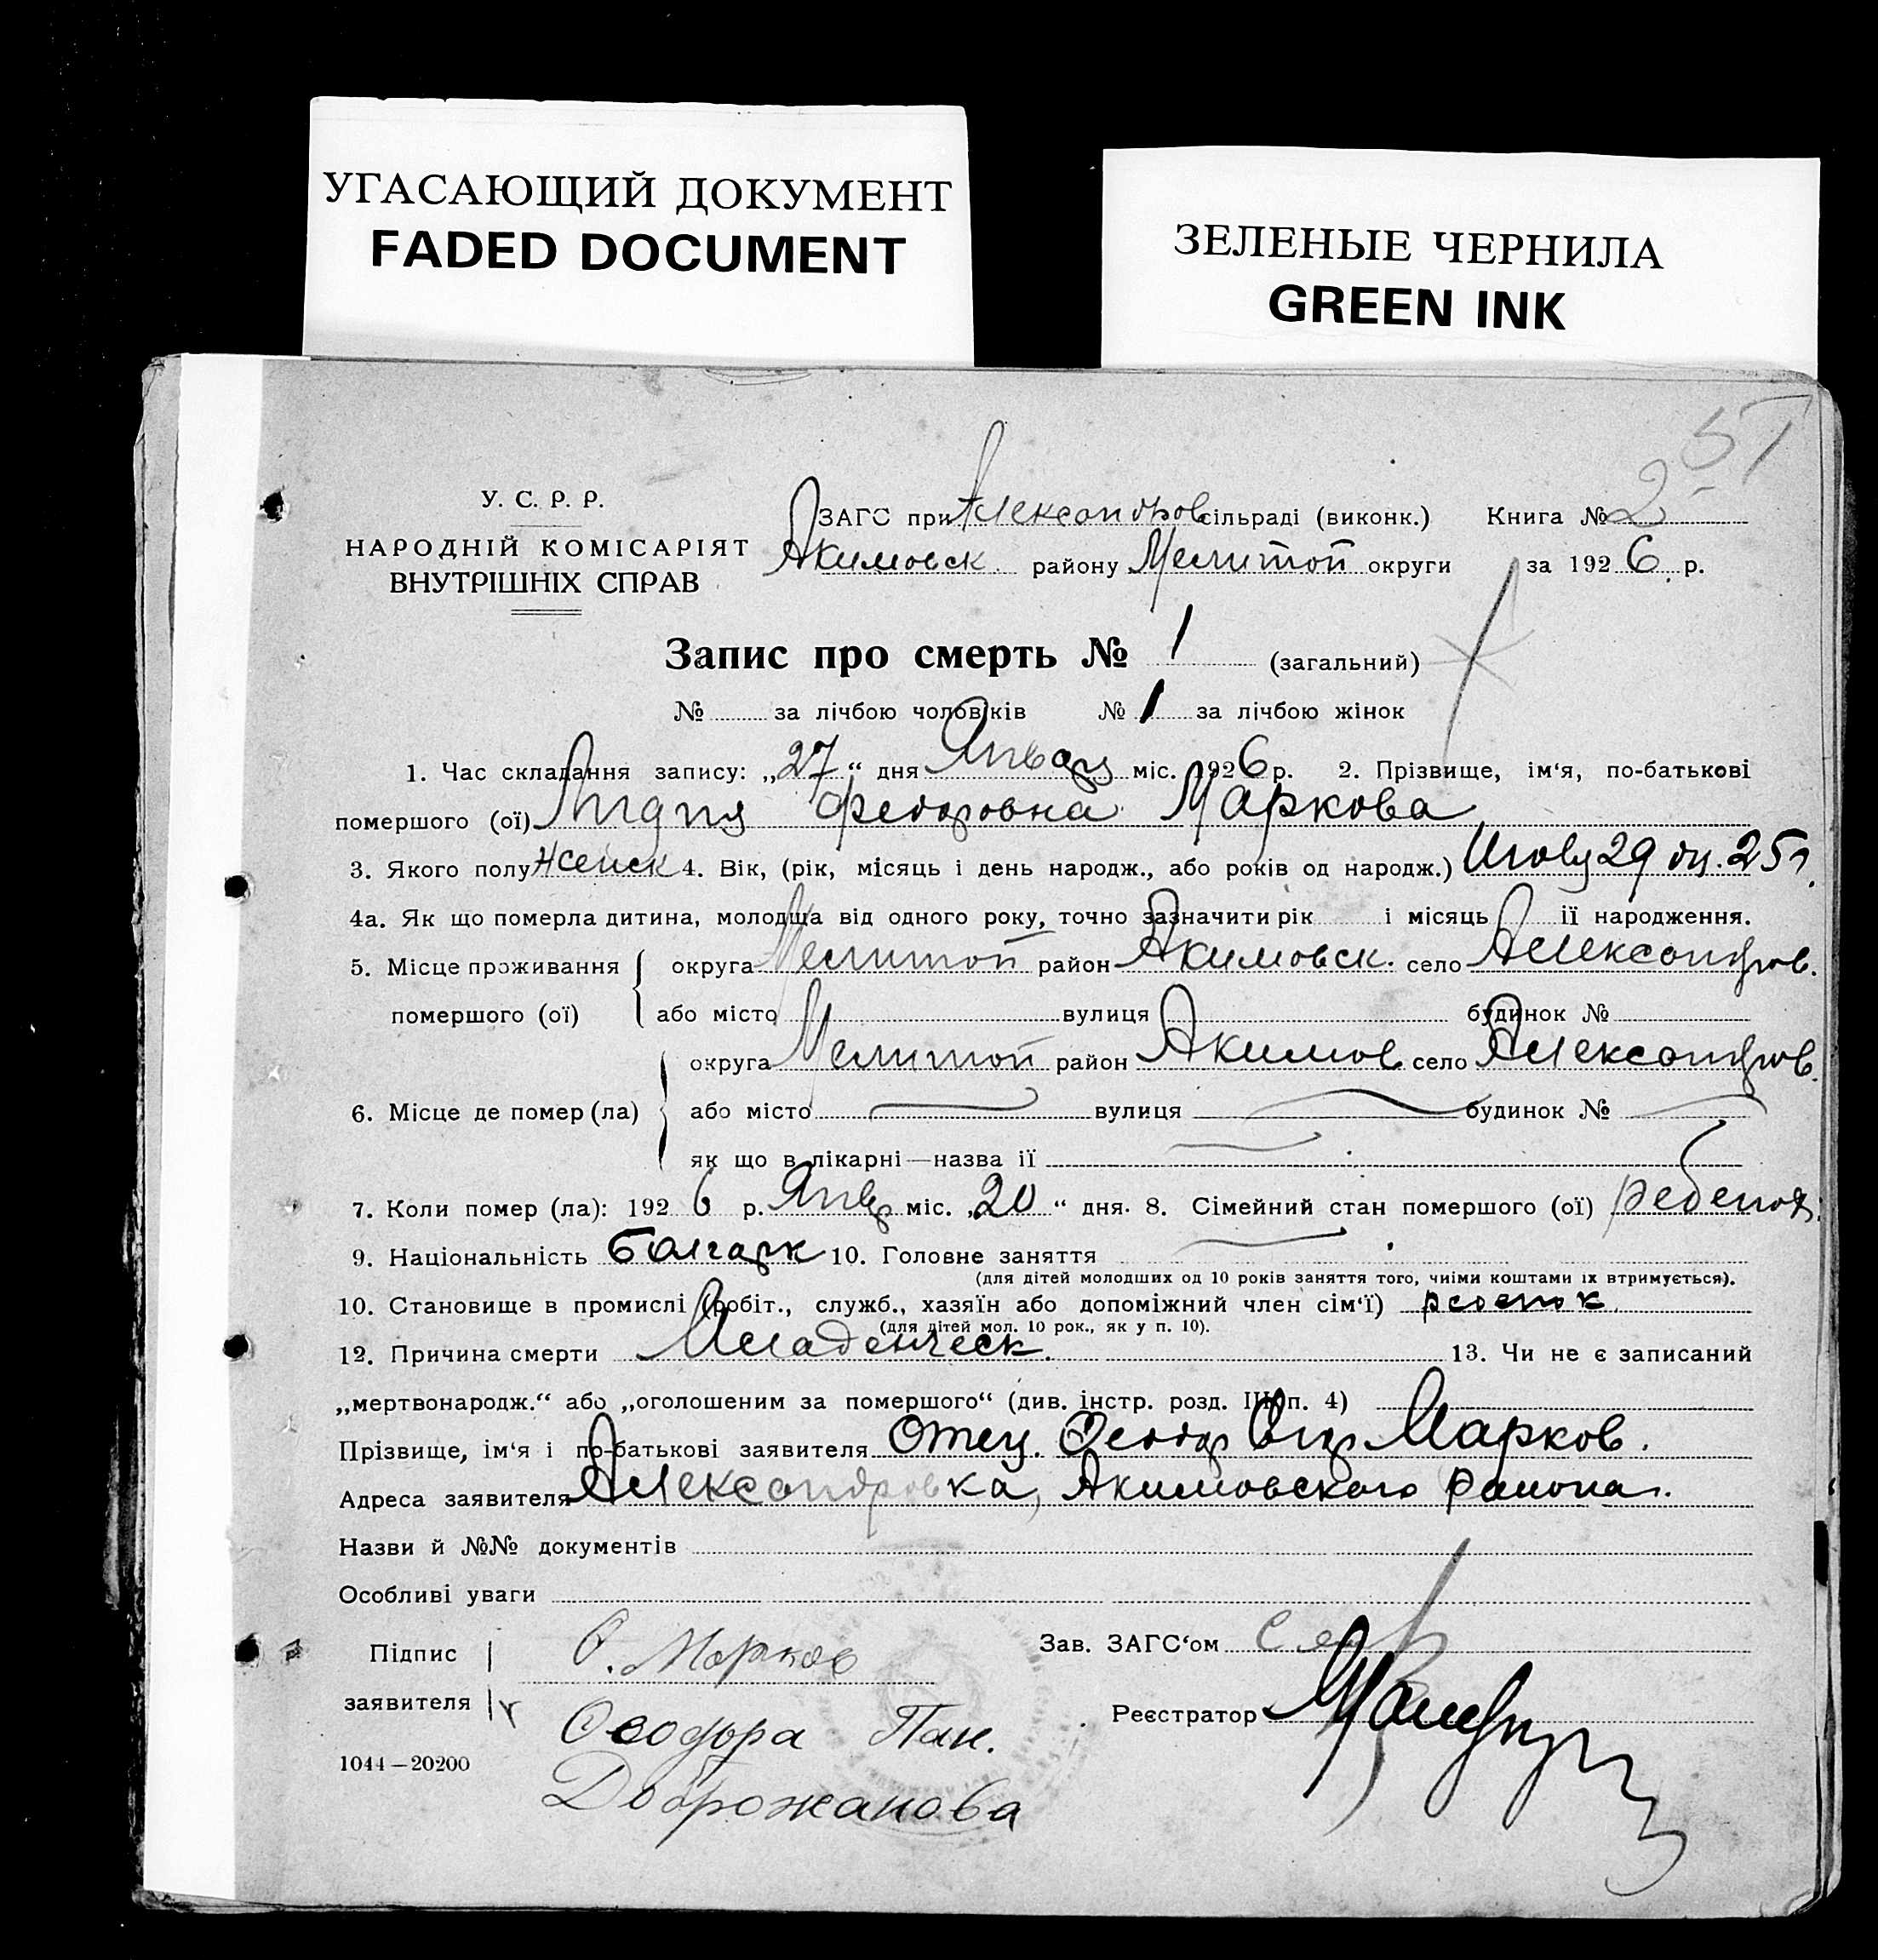 УГАСАЮЩИЙ ДОКУМЕНТ
FADED DOCUMENT
ЗЕЛЕНЫЕ ЧЕРНИЛА
GREEN INK
51
У. С. Р. Р.
НАРОДНІЙ КОМІСАРІЯТ
ВНУТРІШНІХ СПРАВ
ЗАГС при Александров сільраді (виконк.) Книга № 2
Акимовск. району Мелитоп округи за 1926 р.
Запис про смерть № 1 (загальний)
№ за лічбою чоловіків № 1 за лічбою жінок
1. Час складання запису: „27“ дня Января міс. 1926 р. 2. Прізвище, ім'я, по-батькові
помершого (ої) Лидия Федоровна Маркова
3. Якого полу женск 4. Вік, (рік, місяць і день народж., або років од народж.) 29 25 г.
4а. Як що померла дитина, молодша від одного року, точно зазначити рік і місяць її народження.
5. Місце проживання округа Мелитоп район Акимовск. село Александров.
помершого (ої) або місто вулиця будинок №
округа Мелитоп район Акимов село Александров.
6. Місце де помер (ла) або місто вулиця будинок №
як що в лікарні—назва її
7. Коли помер (ла): 1926 р. Янв міс. „20“ дня. 8. Сімейний стан помершого (ої) ребенок
9. Національність болгарк 10. Головне заняття
(для дітей молодших од 10 років заняття того, чиїми коштами їх втримується).
10. Становище в промислі (робіт., служб., хазяїн або допоміжний член сім'ї) ребенок
(для дітей мол. 10 рок., як у п. 10).
12. Причина смерти Младенческ. 13. Чи не є записаний
„мертвонародж.“ або „оголошеним за помершого“ (див. інстр. розд. III п. 4)
Прізвище, ім'я і по-батькові заявителя Отец. Федор Марков.
Адреса заявителя Александровка, Акимовского района.
Назви й №№ документів
Особливі уваги
Підпис Ф. Марков Зав. ЗАГС'ом
заявителя Реєстратор
Феодора Пан.
1044—20200
Доброжанова